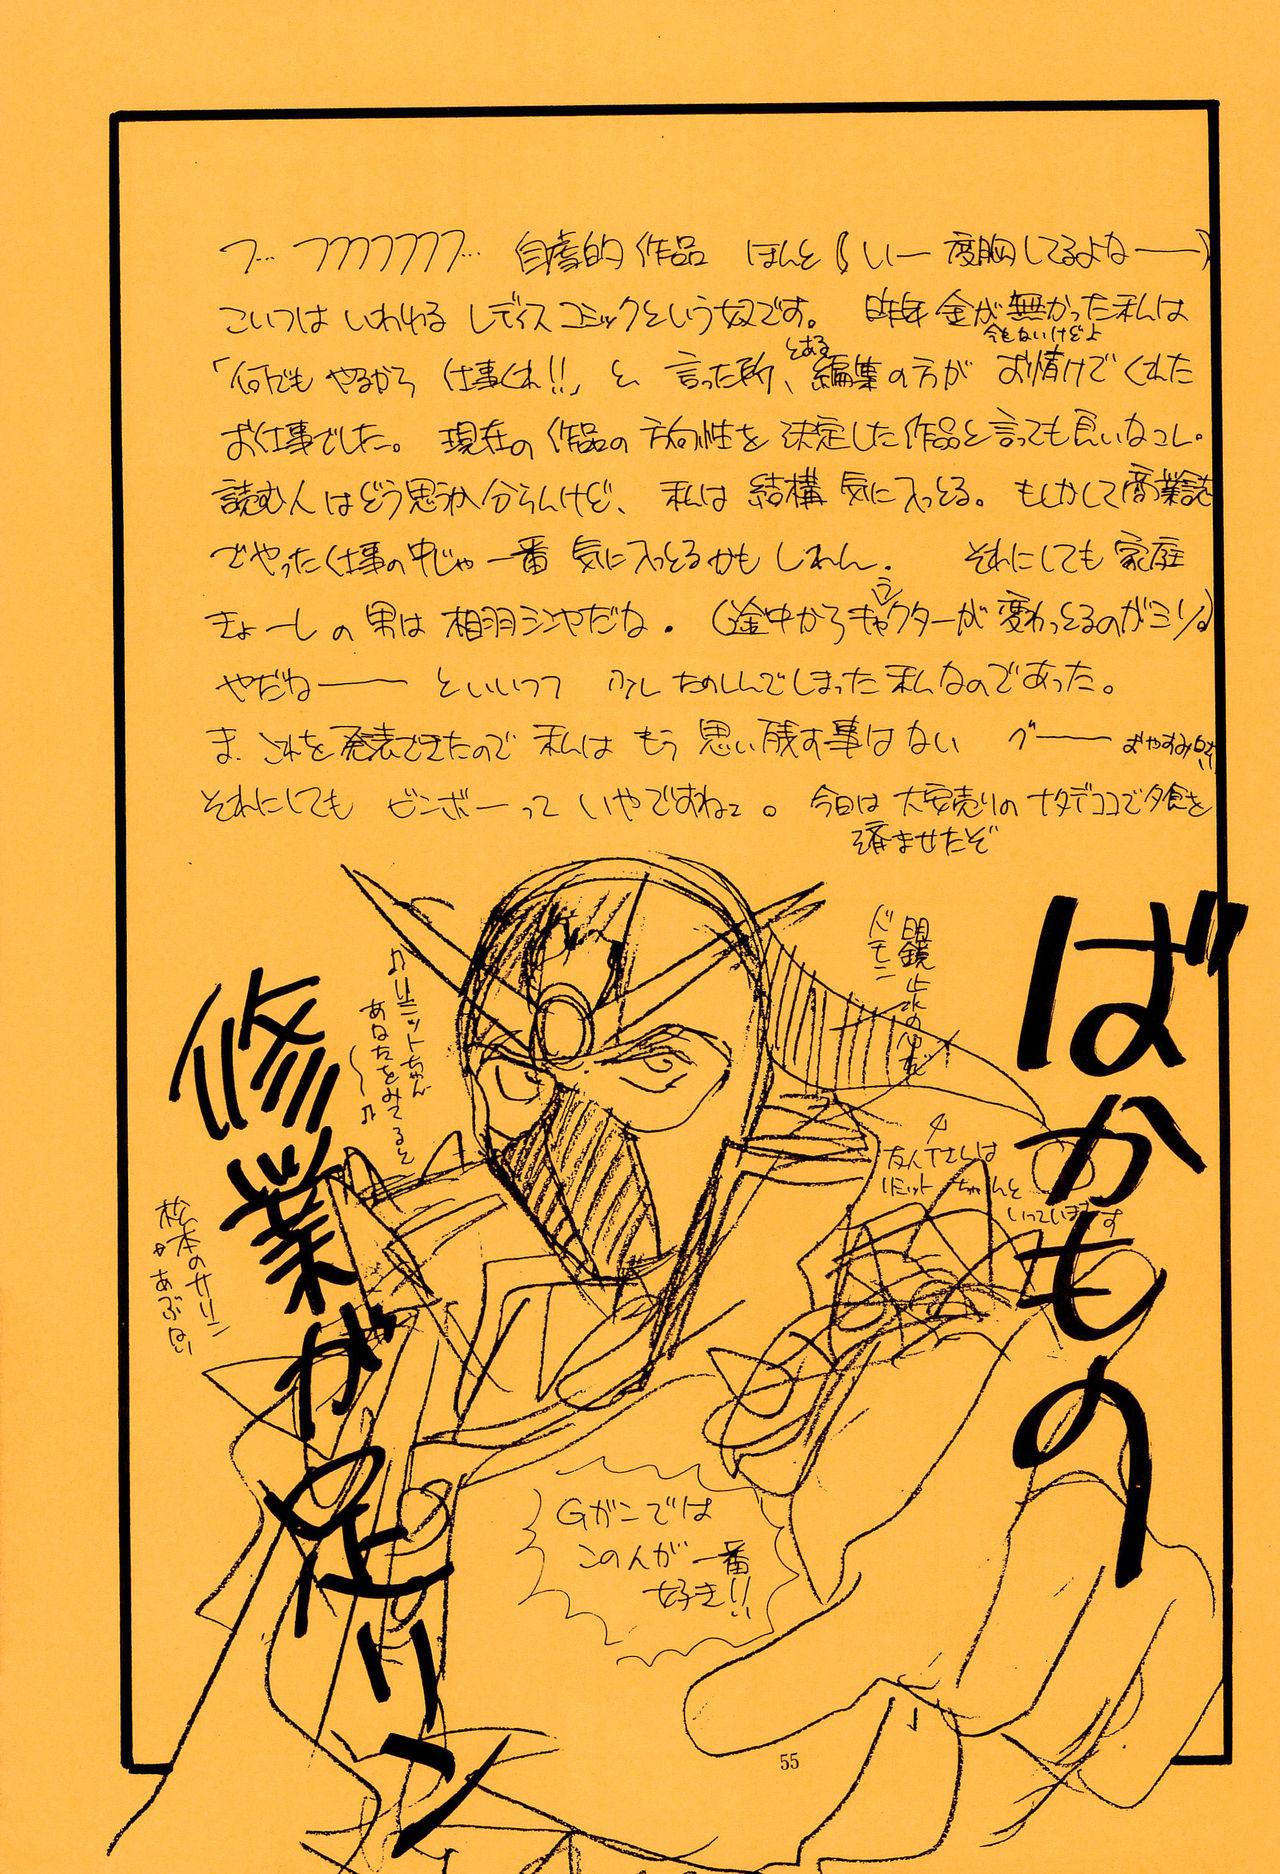 フ… フフフフフフフ… 自虐的作品 ほんと(いー度胸してるよなー)
こいつは いわゆる レディスコミックという奴です。 昨年 金が無かった私は
今もないけどよ
「何でも やるから 仕事くれ!!」と 言った所、とある編集の方が お情けでくれた
お仕事でした。 現在の作品の方向性を決定した作品と言っても良いなコレ。
読む人はどう思うか分らんけど、 私は 結構 気に入っとる。 もしかして商業誌
でやった仕事の中じゃ 一番 気に入っとるかも しれん. それにしても 家庭
きょーしの男は 相羽シンヤだね. (途中からキャラクターが変わっとるのがミソ。)
やだねー といいつつ 少し たのしんでしまった私なのであった。
ま. これを発表できたので 私は もう 思い残す事はない グー おやすみ
それにしても ビンボーって いやですねェ。 今日は 大安売りの ナタデココで夕食を
済ませたぞ
ばかもの
明鏡止水の
ドモン
友人Tさんは
リミットちゃんと
いっています
♪リミットちゃん
あなたをみてると
〜♪
修業が足リン
松本のサリン
あぶない
Gガンでは
この人が 一番
好き!!
55